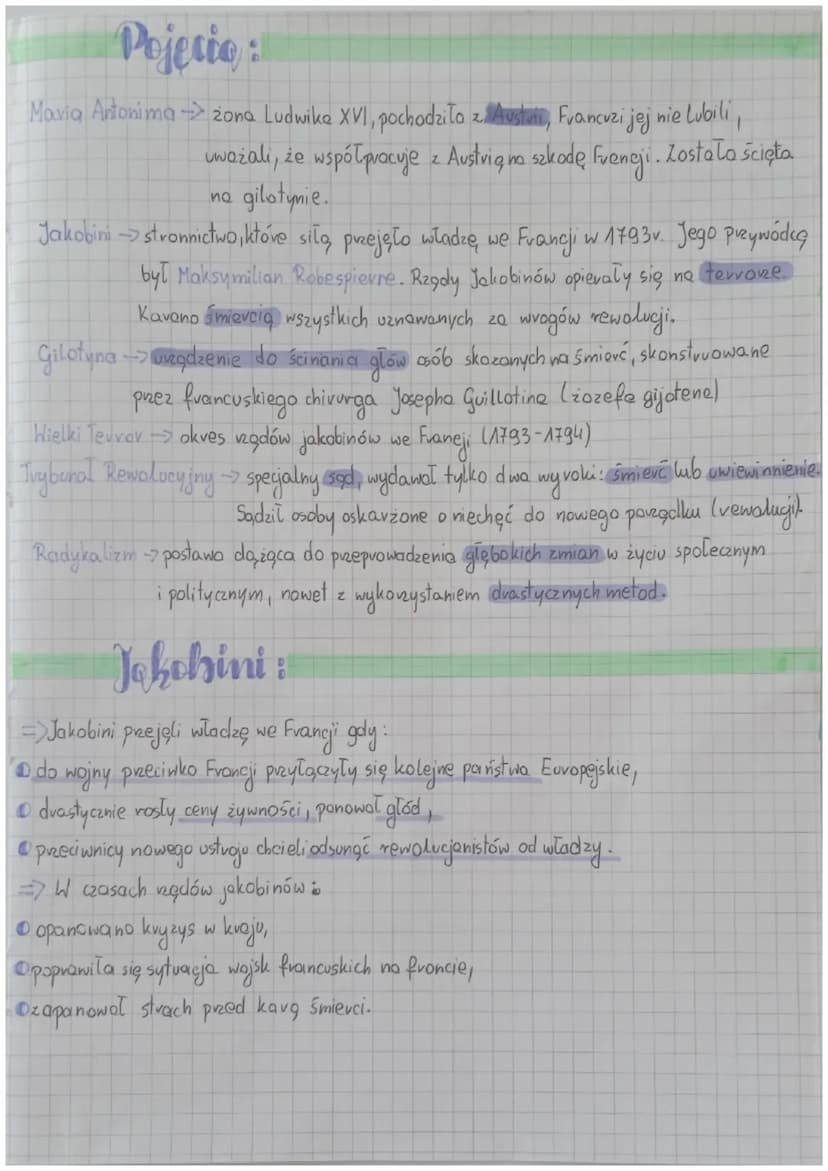 Pojęcia:
Maria Antonina → żona Ludwika XVI, pochodziła z Austrii, Francuzi jej nie lubili,
uważali, że współpracuje z Austrią na szkodę Francji. Została ścięta
na gilotynie.
Jakobini → stronnictwo, które siłą przejęło władzę we Francji w 1793r. Jego przywódcą
był Maksymilian Robespierre. Rządy Jakobinów opierały się na terrorze.
Karano śmiercią wszystkich uznawanych za wrogów rewolucji.
Gilotyna → urządzenie do ścinania głów osób skazanych na śmierć, skonstruowane
przez francuskiego chirurga Josepha Guillotina (żozefa gijotena)
Wielki Terror → okres rządów jakobinów we Francji (1793-1794)
Trybunał Rewolucyjny → specjalny sąd, wydawał tylko dwa wyroki: śmierć lub uniewinnienie.
Sądził osoby oskarżone o niechęć do nowego porządku (rewolucji).
Radykalizm → postawa dążąca do przeprowadzenia głębokich zmian w życiu społecznym
i politycznym, nawet z wykorzystaniem drastycznych metod.
Jakobini:
=> Jakobini przejęli władzę we Francji gdy:
do wojny przeciwko Francji przyłączyły się kolejne państwa Europejskie,
drastycznie rosły ceny żywności, panował głód,
przeciwnicy nowego ustroju chcieli odsunąć rewolucjonistów od władzy.
=> W czasach rządów jakobinów:
opanowano kryzys w kraju,
poprawiła się sytuacja wojsk francuskich na froncie,
zapanował strach przed karą śmierci.